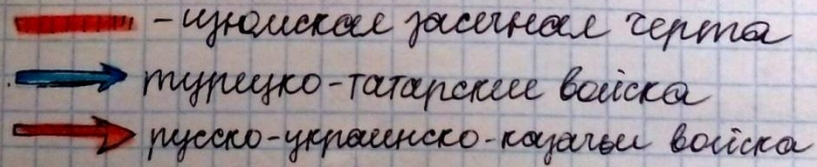 - изюмская засечная черта
турецко-татарские войска
русско-украинско-казачьи войска